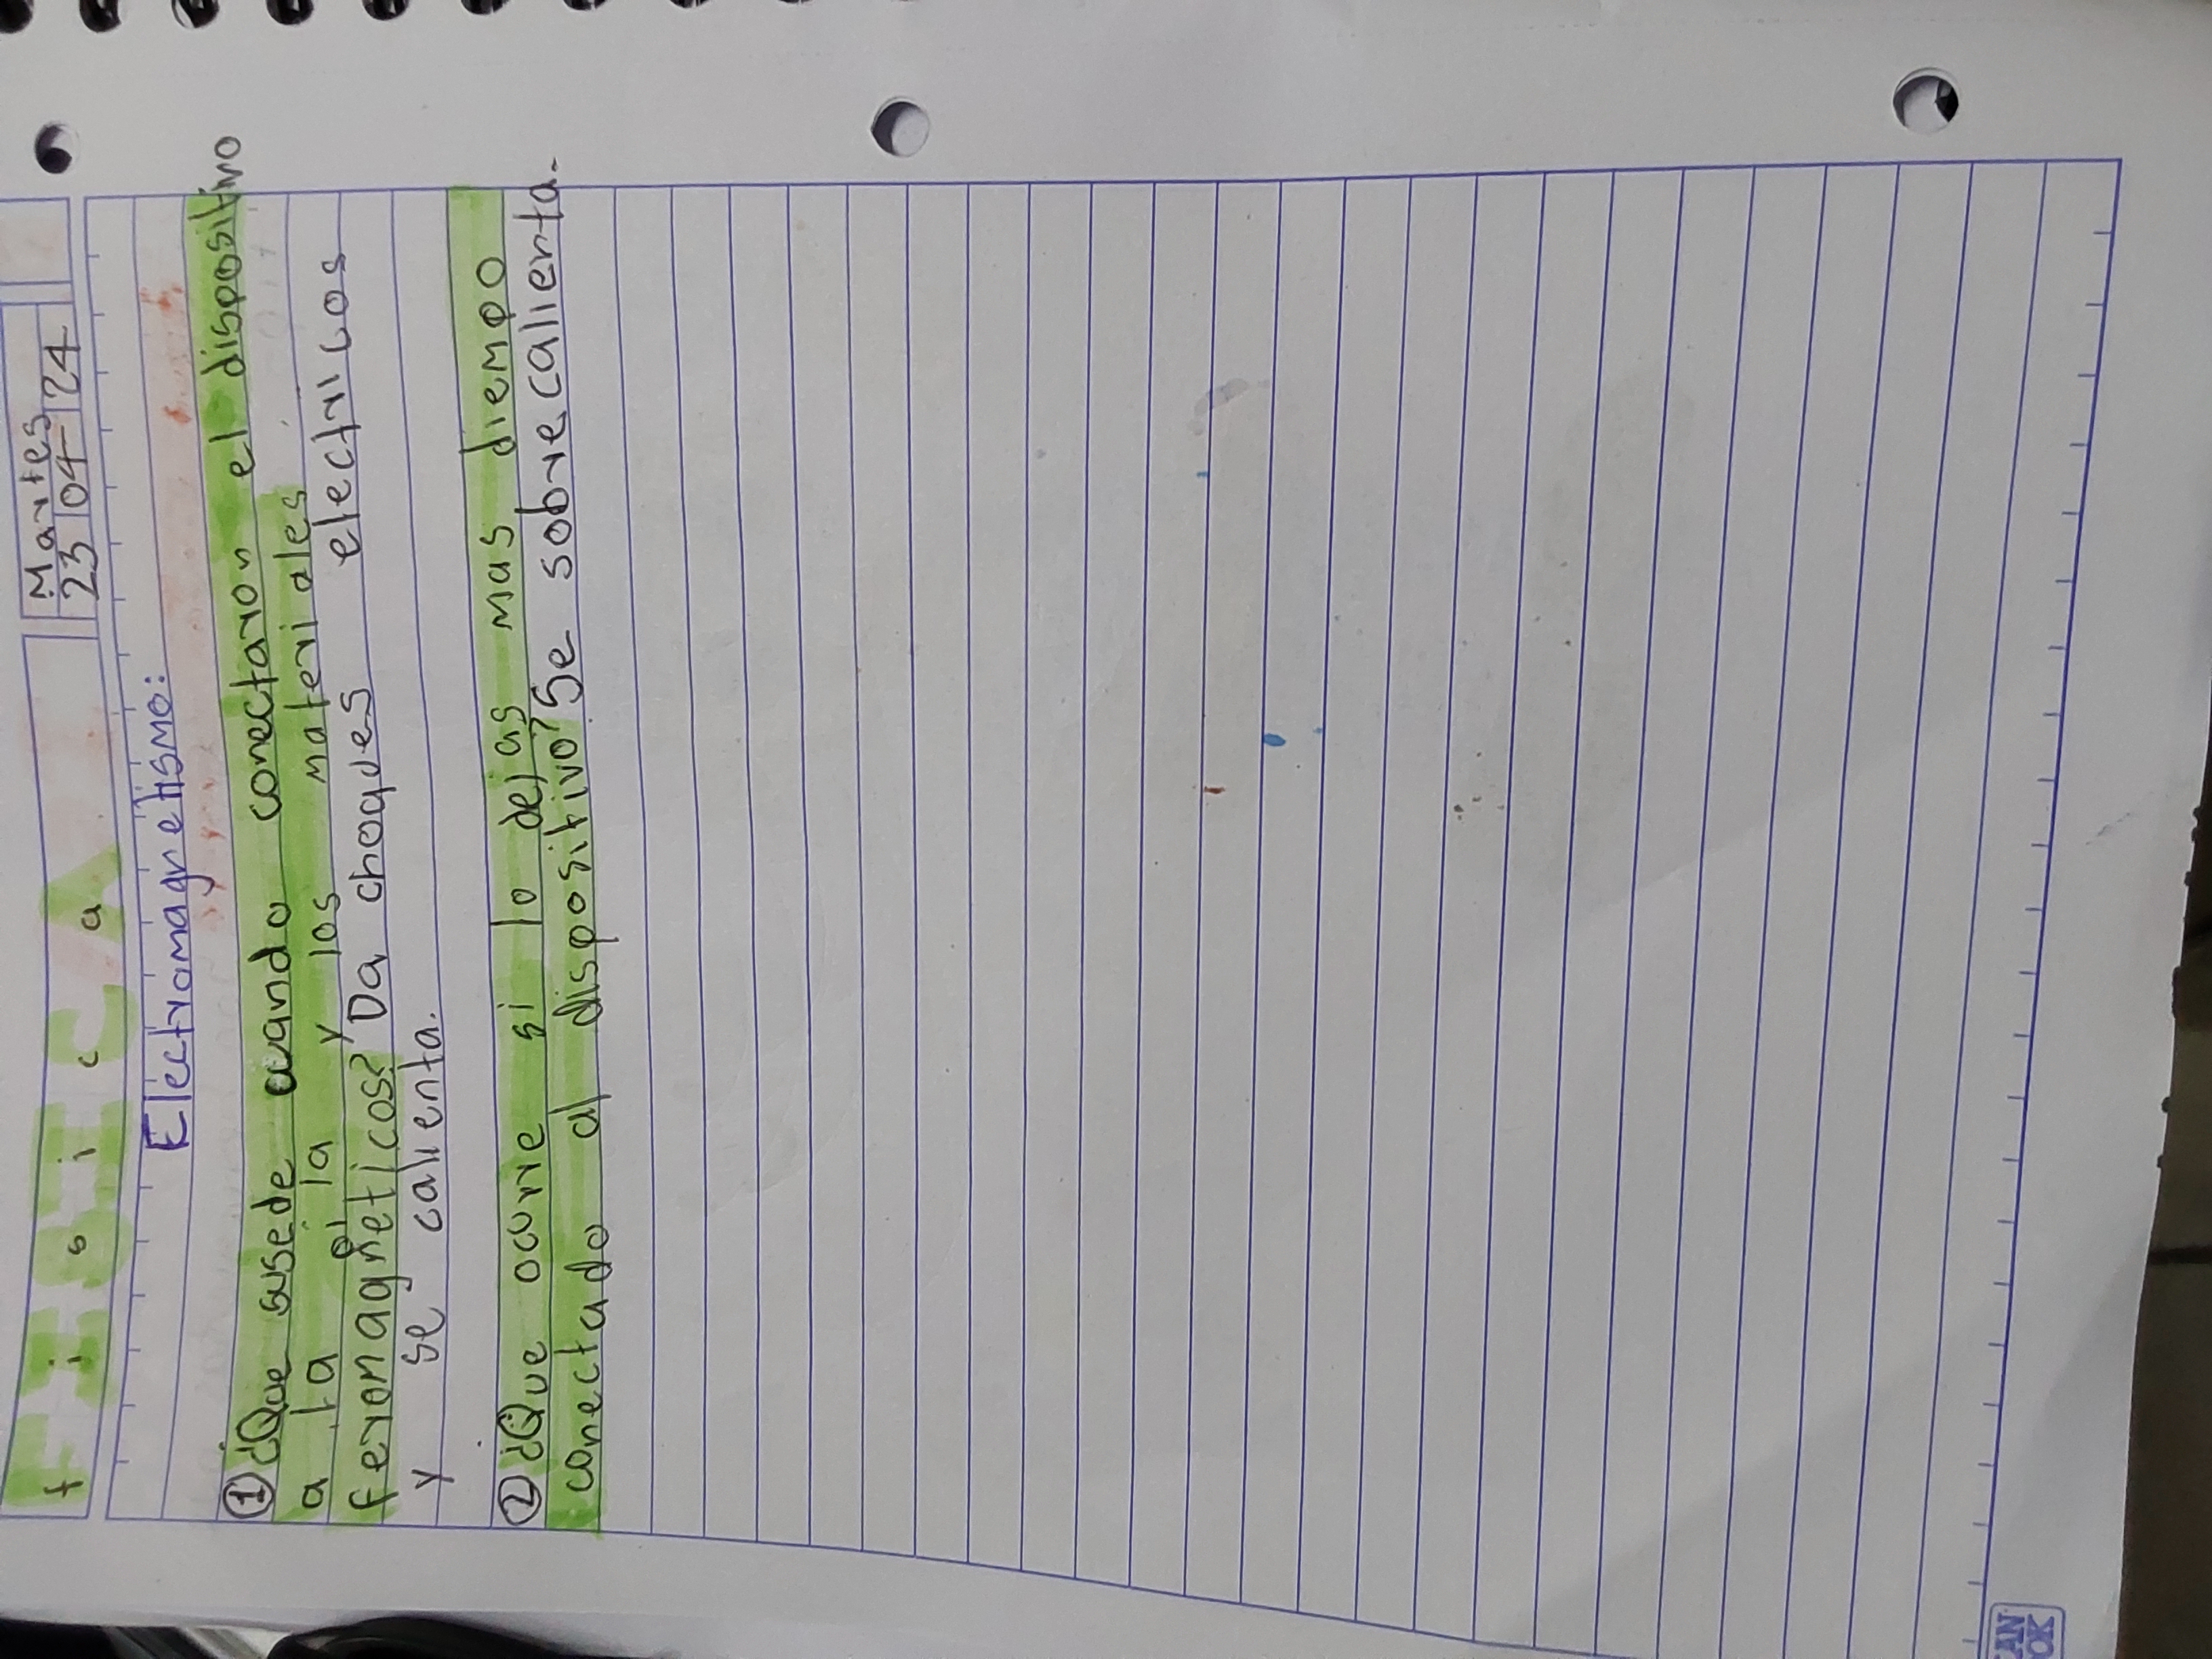 Martes
física 23 04 24
Electromagnetismo:
① ¿Que susede cuando conectaron el dispositivo
a la pila y los materiales
ferromagneticos? Da choques electricos
y se calienta.
② ¿Que ocurre si lo dejas mas diempo
conectado al dispositivo? Se sobrecalienta.